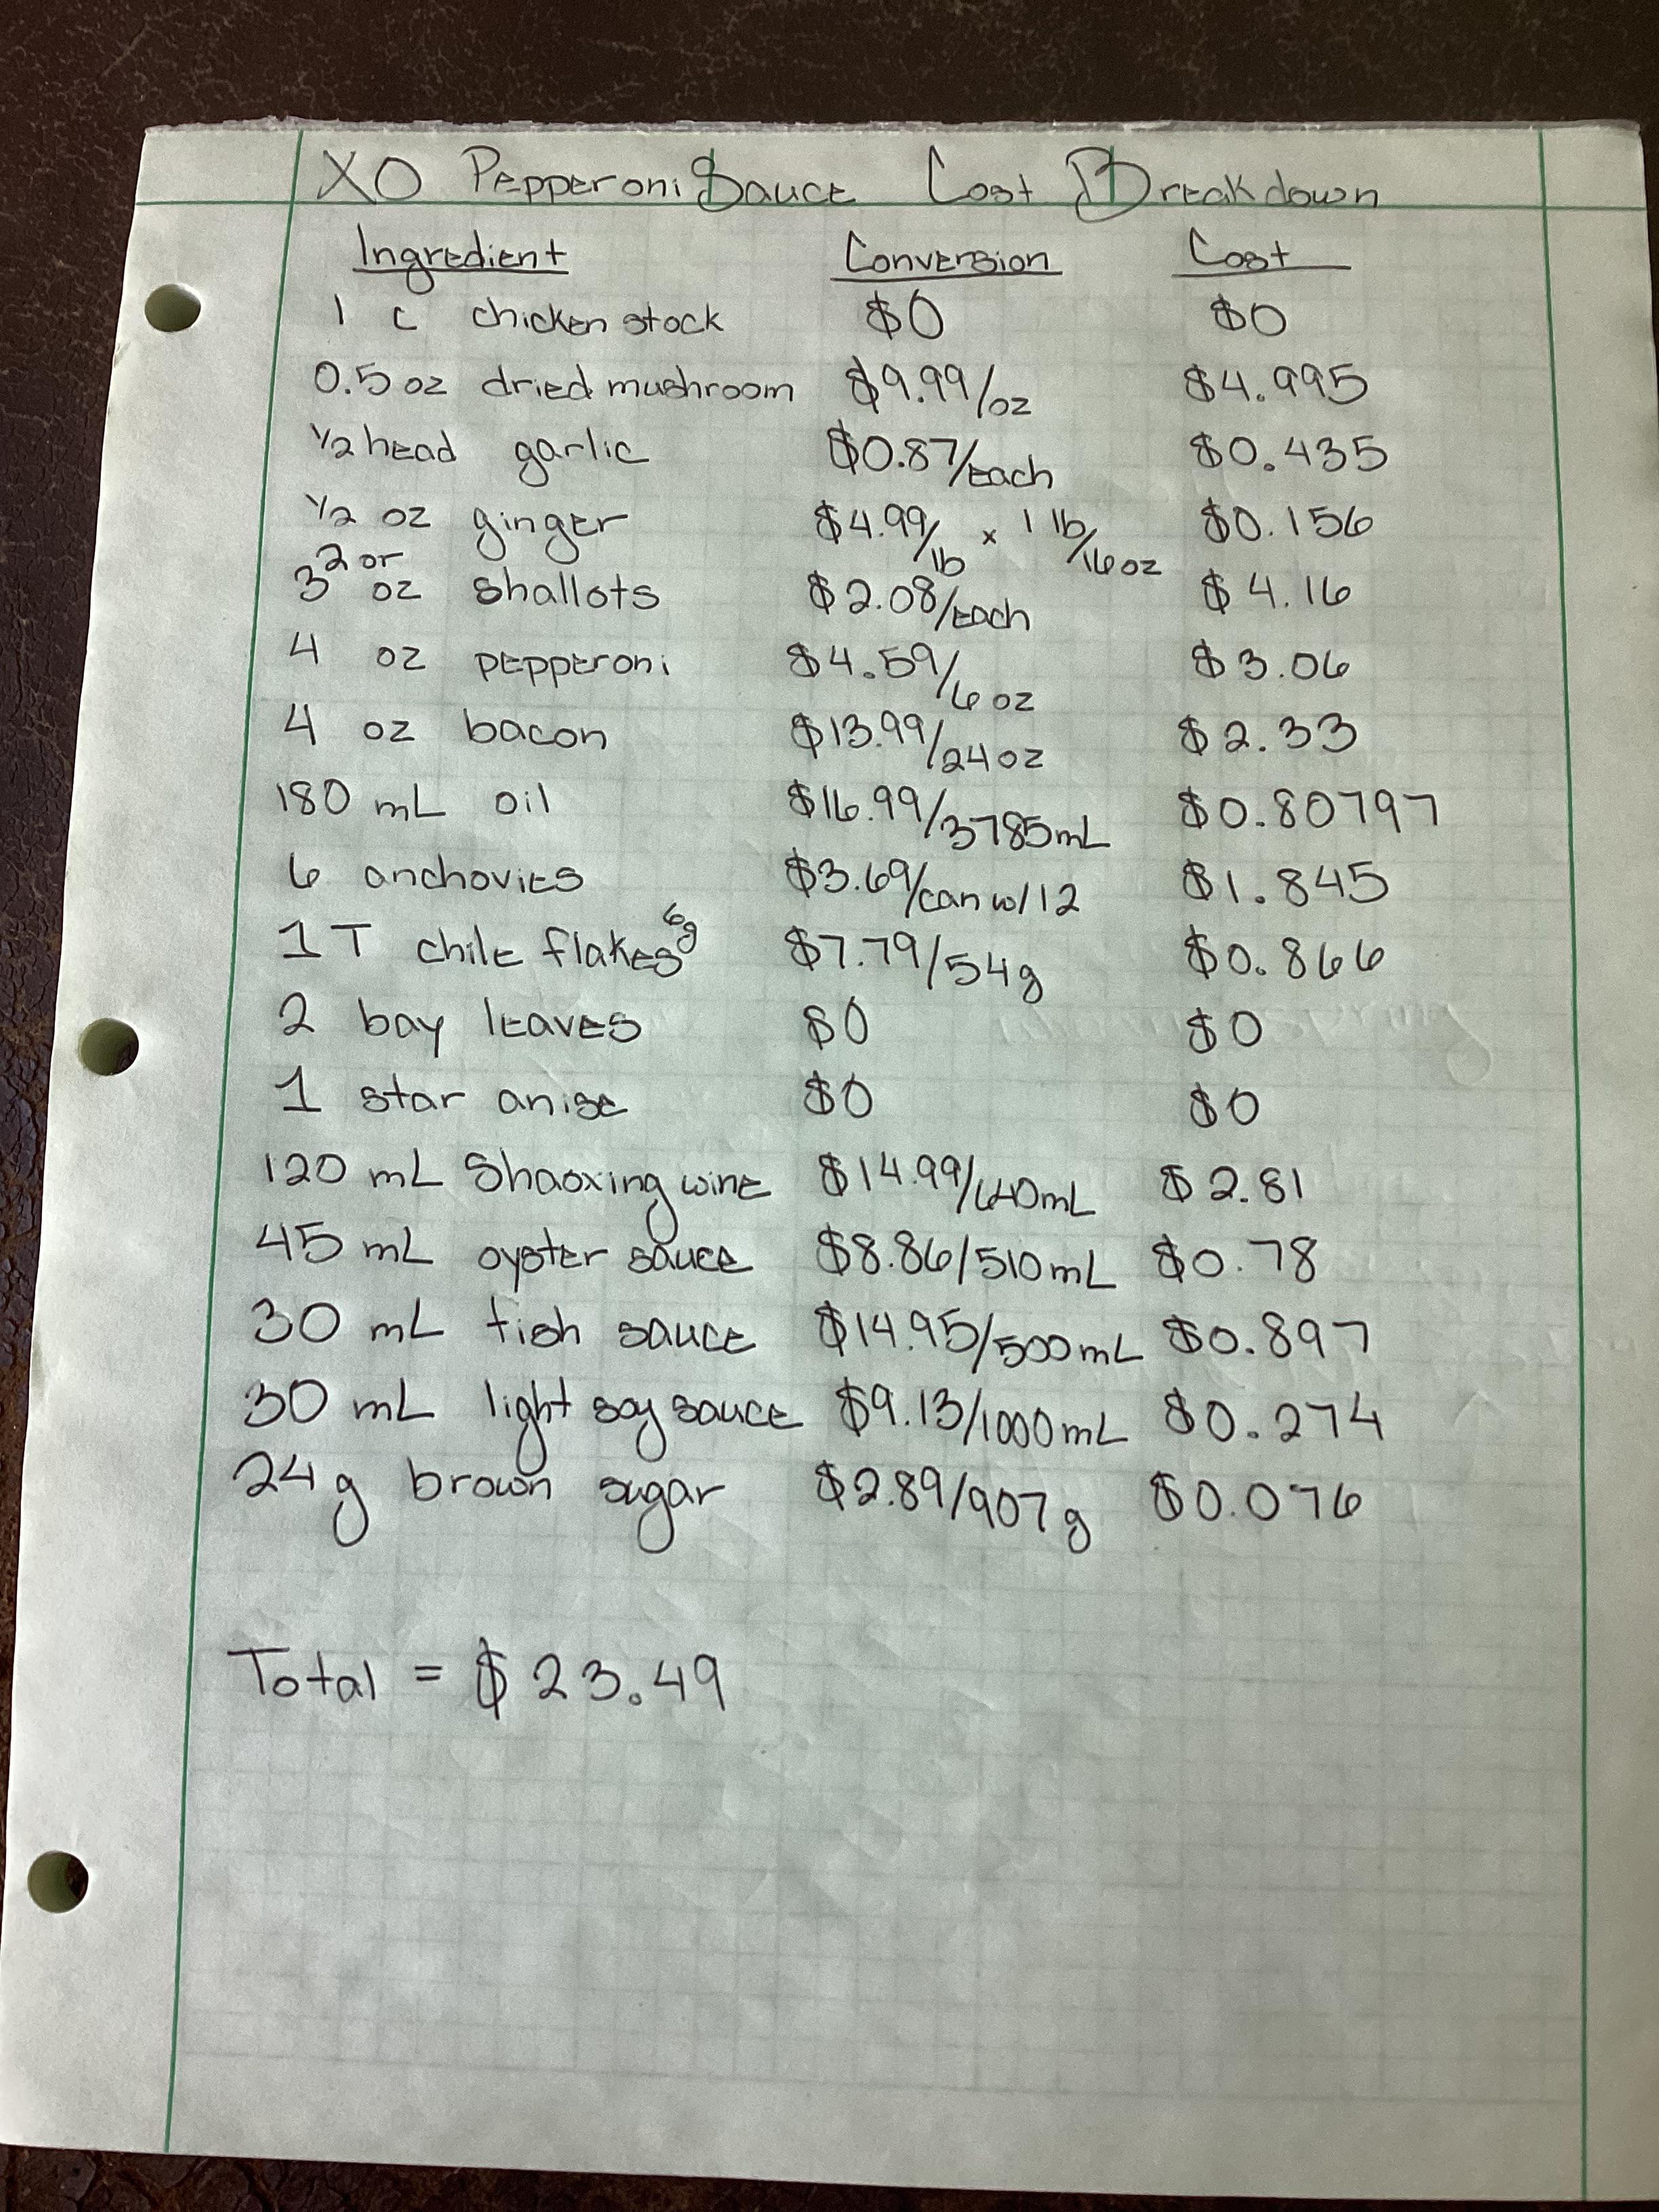 XO Pepperoni Sauce Cost Breakdown
Ingredient Conversion Cost
1 c chicken stock $0 $0
0.5 oz dried mushroom $9.99/oz $4.995
1/2 head garlic $0.87/each $0.435
1/2 oz ginger $4.99/lb x 1 lb/16oz $0.156
2 or 3 oz shallots $2.08/each $4.16
4 oz pepperoni $4.59/6 oz $3.06
4 oz bacon $13.99/24oz $2.33
180 mL oil $16.99/3785mL $0.80797
6 anchovies $3.69/can w/12 $1.845
1 T chile flakes 6g $7.79/54g $0.866
2 bay leaves $0 $0
1 star anise $0 $0
120 mL Shaoxing wine $14.99/640mL $2.81
45 mL oyster sauce $8.86/510mL $0.78
30 mL fish sauce $14.95/500mL $0.897
30 mL light soy sauce $9.13/1000mL $0.274
24g brown sugar $2.89/907g $0.076
Total = $23.49